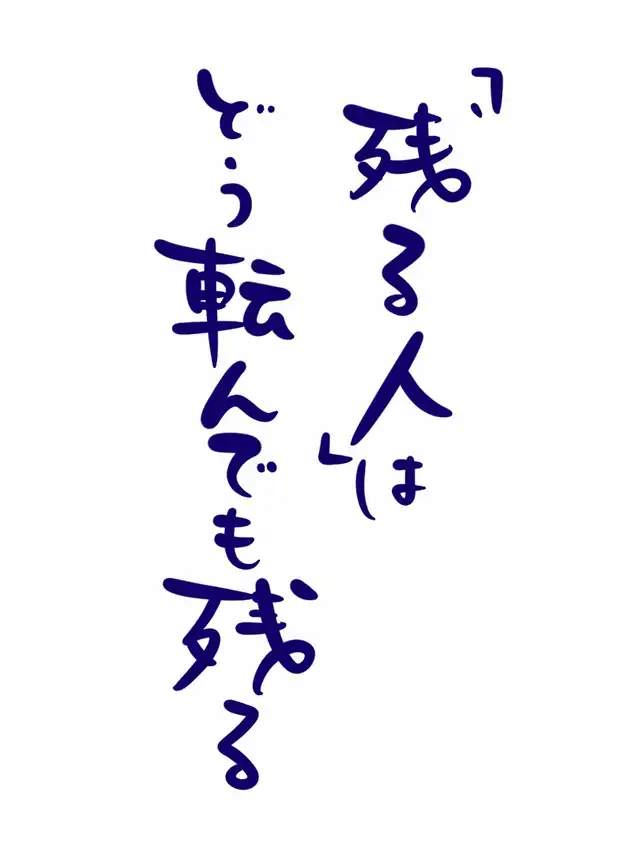 「残る人」は
どう転んでも残る